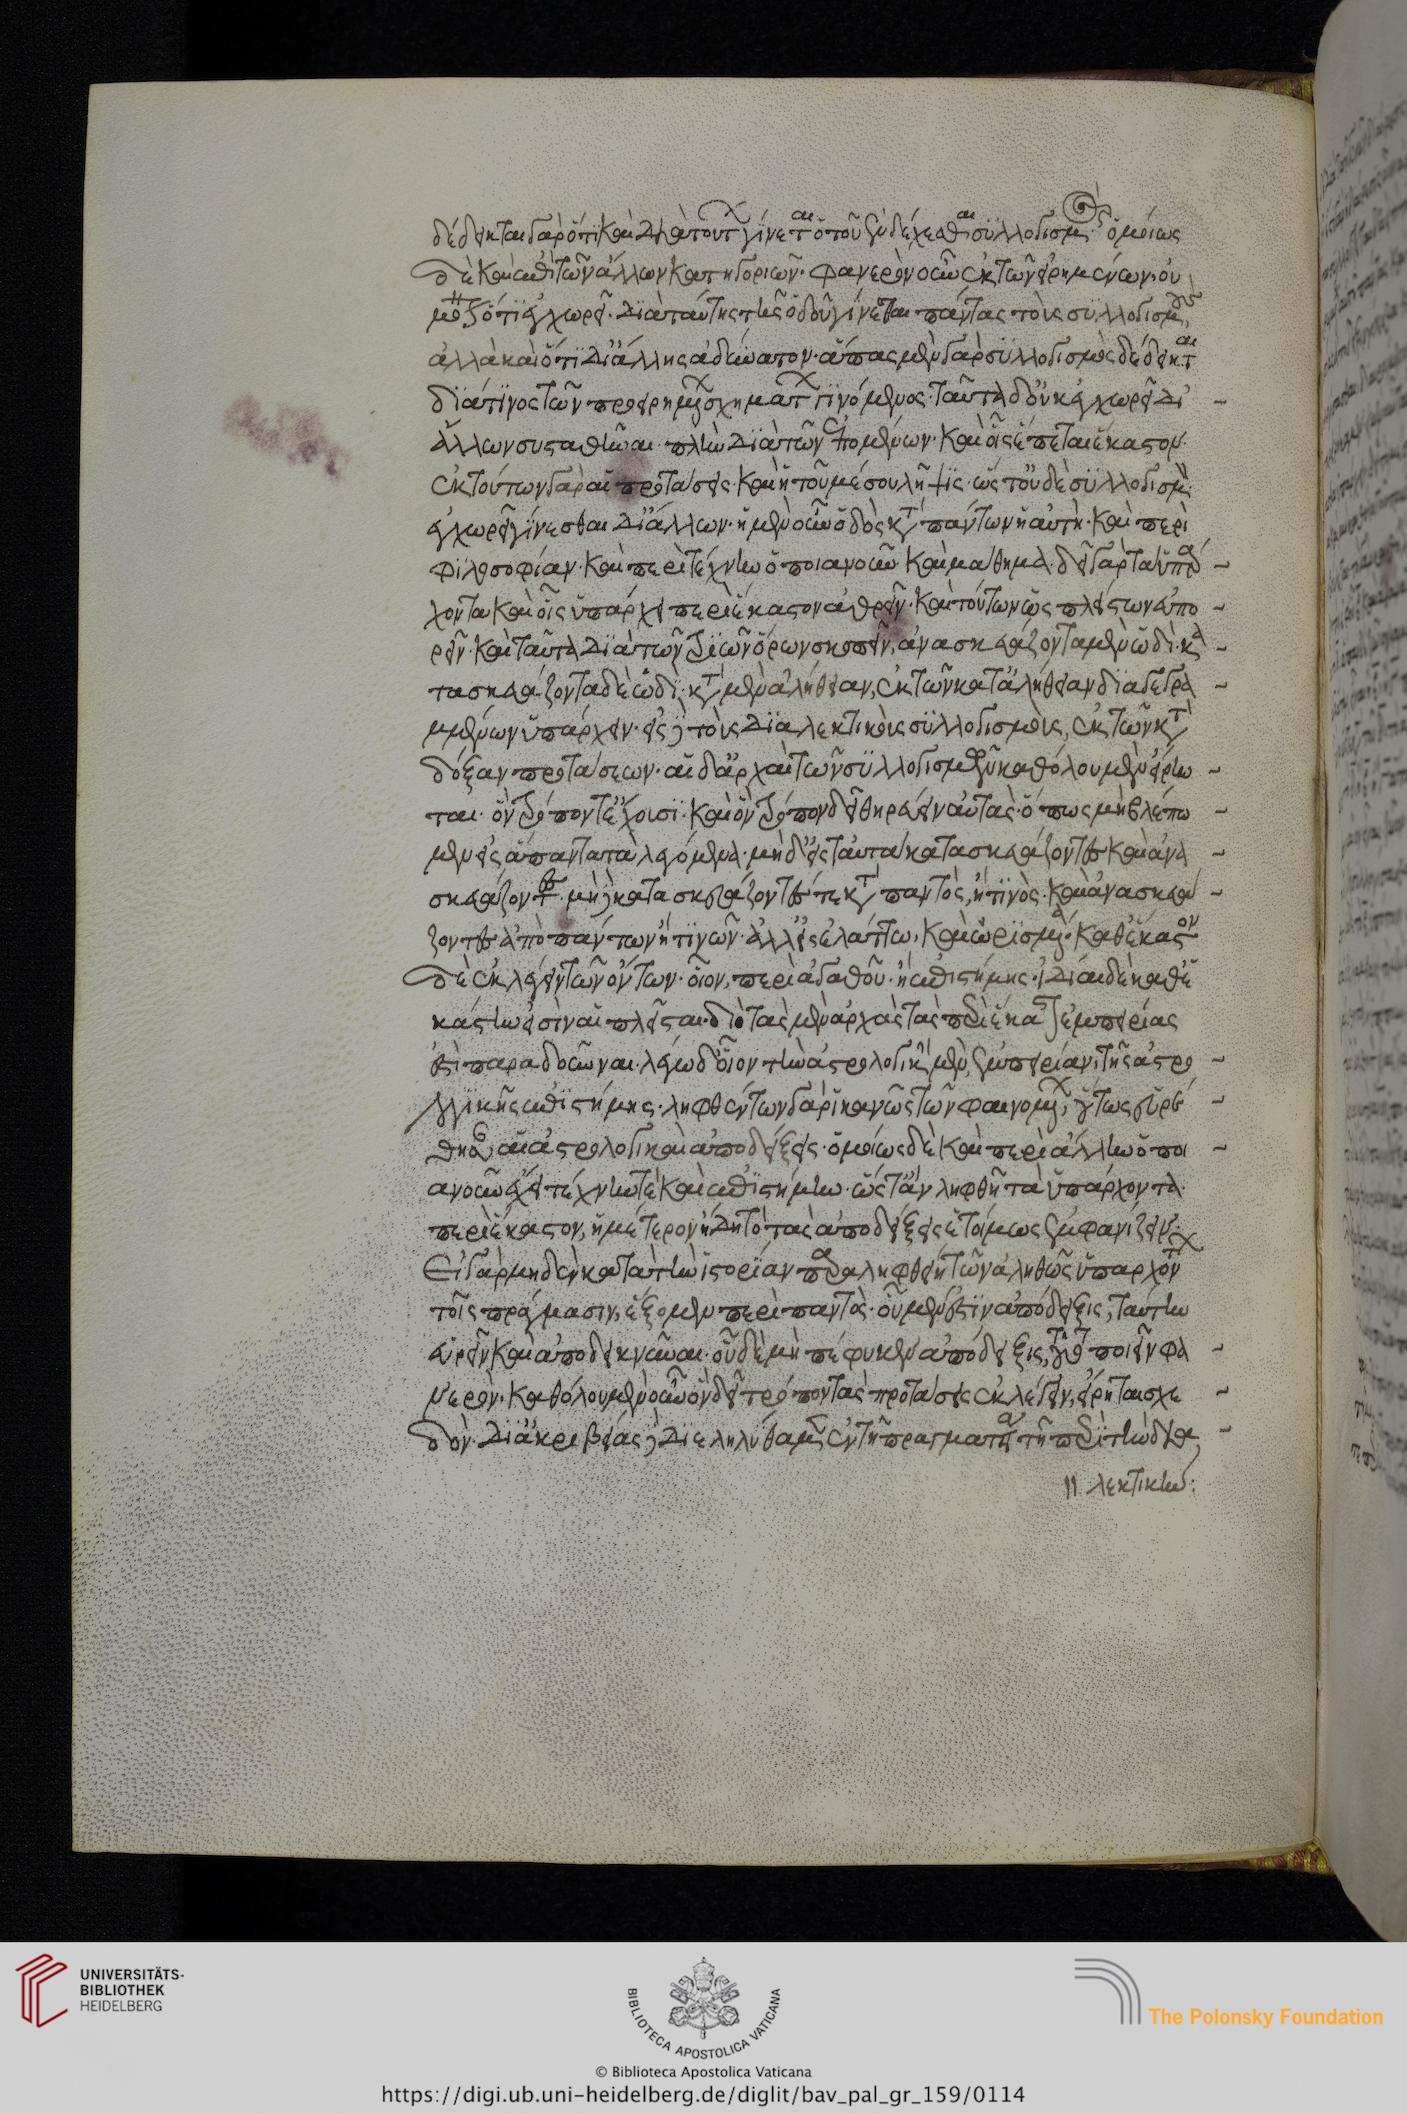 δέδεικται γὰρ ὅτι καὶ διὰ τούτων γίνεται ὁ τοῦ ἐνδέχεσθαι συλλογισμός· ὁμοίως
δὲ καὶ ἐπὶ τῶν ἄλλων κατηγοριῶν· φανερὸν οὖν ἐκ τῶν εἰρημένων· οὐ
μόνον ὅτι ἐγχωρεῖ διὰ ταύτης τῆς ὁδοῦ γίνεσθαι πάντας τοὺς συλλογισμούς,
ἀλλὰ καὶ ὅτι δι' ἄλλης ἀδύνατον· ἅπας μὲν γὰρ συλλογισμὸς δέδεικται
διά τινος τῶν προειρημένων σχημάτων γινόμενος· ταῦτα δ' οὐκ ἐγχωρεῖ δι'
ἄλλων συσταθῆναι πλὴν διὰ τῶν ἑπομένων· καὶ οἷς ἕπεται ἕκαστον·
ἐκ τούτων γὰρ αἱ προτάσεις· καὶ ἡ τοῦ μέσου λῆψις· ὥστ' οὐδὲ συλλογισμὸν
ἐγχωρεῖ γίνεσθαι δι' ἄλλων· ἡ μὲν οὖν ὁδὸς κατὰ πάντων ἡ αὐτὴ· καὶ περὶ
φιλοσοφίαν· καὶ περὶ τέχνην ὁποιανοῦν καὶ μάθημα· δεῖ γὰρ τὰ ὑπάρ
χοντα καὶ οἷς ὑπάρχει περὶ ἕκαστον ἀθρεῖν· καὶ τούτων ὡς πλείστων εὐπο
ρεῖν· καὶ ταῦτα διὰ τῶν τριῶν ὅρων σκοπεῖν, ἀνασκευάζοντα μὲν ὡδί· κα
τασκευάζοντα δὲ ὡδί· κατὰ μὲν ἀλήθειαν, ἐκ τῶν κατ' ἀλήθειαν διαγεγρα
μμένων ὑπάρχειν· εἰς δὲ τοὺς διαλεκτικοὺς συλλογισμοὺς, ἐκ τῶν κατὰ
δόξαν προτάσεων· αἱ δ' ἀρχαὶ τῶν συλλογισμῶν καθόλου μὲν εἴρην
ται· ὃν τρόπον τ' ἔχουσι· καὶ ὃν τρόπον δεῖ θηρεύειν αὐτὰς· ὅπως μὴ βλέπω
μεν εἰς ἅπαντα τὰ λεγόμενα· μηδ' εἰς ταὐτὰ κατασκευάζοντες καὶ ἀνα
σκευάζοντες· μηδὲ κατασκευάζοντές τε κατὰ παντὸς, ἢ τινὸς· καὶ ἀνασκευά
ζοντες ἀπὸ πάντων ἢ τινῶν· ἀλλ' εἰς ἐλάττω, καὶ ὡρισμένα· καθ' ἕκαστον
δὲ ἐκλέγειν τῶν ὄντων· οἷον, περὶ ἀγαθοῦ· ἢ ἐπιστήμης· ἴδιαι δὲ καθ' ἑ
κάστην εἰσὶν αἱ πλεῖσται· διὸ τὰς μὲν ἀρχὰς τὰς περὶ ἕκαστον ἐμπειρίας
ἐστὶ παραδοῦναι· λέγω δ' οἷον τὴν ἀστρολογικὴν μὲν ἐμπειρίαν, τῆς ἀστρο
λογικῆς ἐπιστήμης· ληφθέντων γὰρ ἱκανῶς τῶν φαινομένων, οὕτως εὑρέ
θησαν αἱ ἀστρολογικαὶ ἀποδείξεις· ὁμοίως δὲ καὶ περὶ ἄλλην ὁποι
ανοῦν ἔχει τέχνην τὲ καὶ ἐπιστήμην· ὥστ' ἂν ληφθῇ τὰ ὑπάρχοντα
περὶ ἕκαστον, ἡμέτερον ἤδη τὸ τὰς ἀποδείξεις ἑτοίμως ἐμφανίζειν·
Εἰ γὰρ μηδὲν κατὰ τὴν ἱστορίαν παραληφθείη τῶν ἀληθῶς ὑπαρχόντων
τοῖς πράγμασιν, ἕξομεν περὶ παντὸς· οὗ μέν ἐστιν ἀπόδειξις, ταύτην
εὑρεῖν καὶ ἀποδεικνύναι· οὗ δὲ μὴ πέφυκεν ἀπόδειξις, τοῦτο ποιεῖν φα
νερὸν· καθόλου μὲν οὖν ὃν δεῖ τρόπον τὰς προτάσεις ἐκλέγειν, εἴρηται σχε
δὸν· δι' ἀκριβείας δὲ διεληλύθαμεν ἐν τῇ πραγματείᾳ τῇ περὶ τὴν δια
λεκτικήν:
UNIVERSITÄTS-
BIBLIOTHEK
HEIDELBERG
BIBLIOTECA APOSTOLICA VATICANA
The Polonsky Foundation
© Biblioteca Apostolica Vaticana
https://digi.ub.uni-heidelberg.de/diglit/bav_pal_gr_159/0114